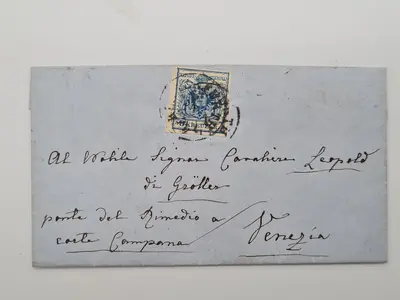 Al Nobile Signor Cavaliere Leopold
di Gröller
ponte del Rimedio a
corte Campana Venezia